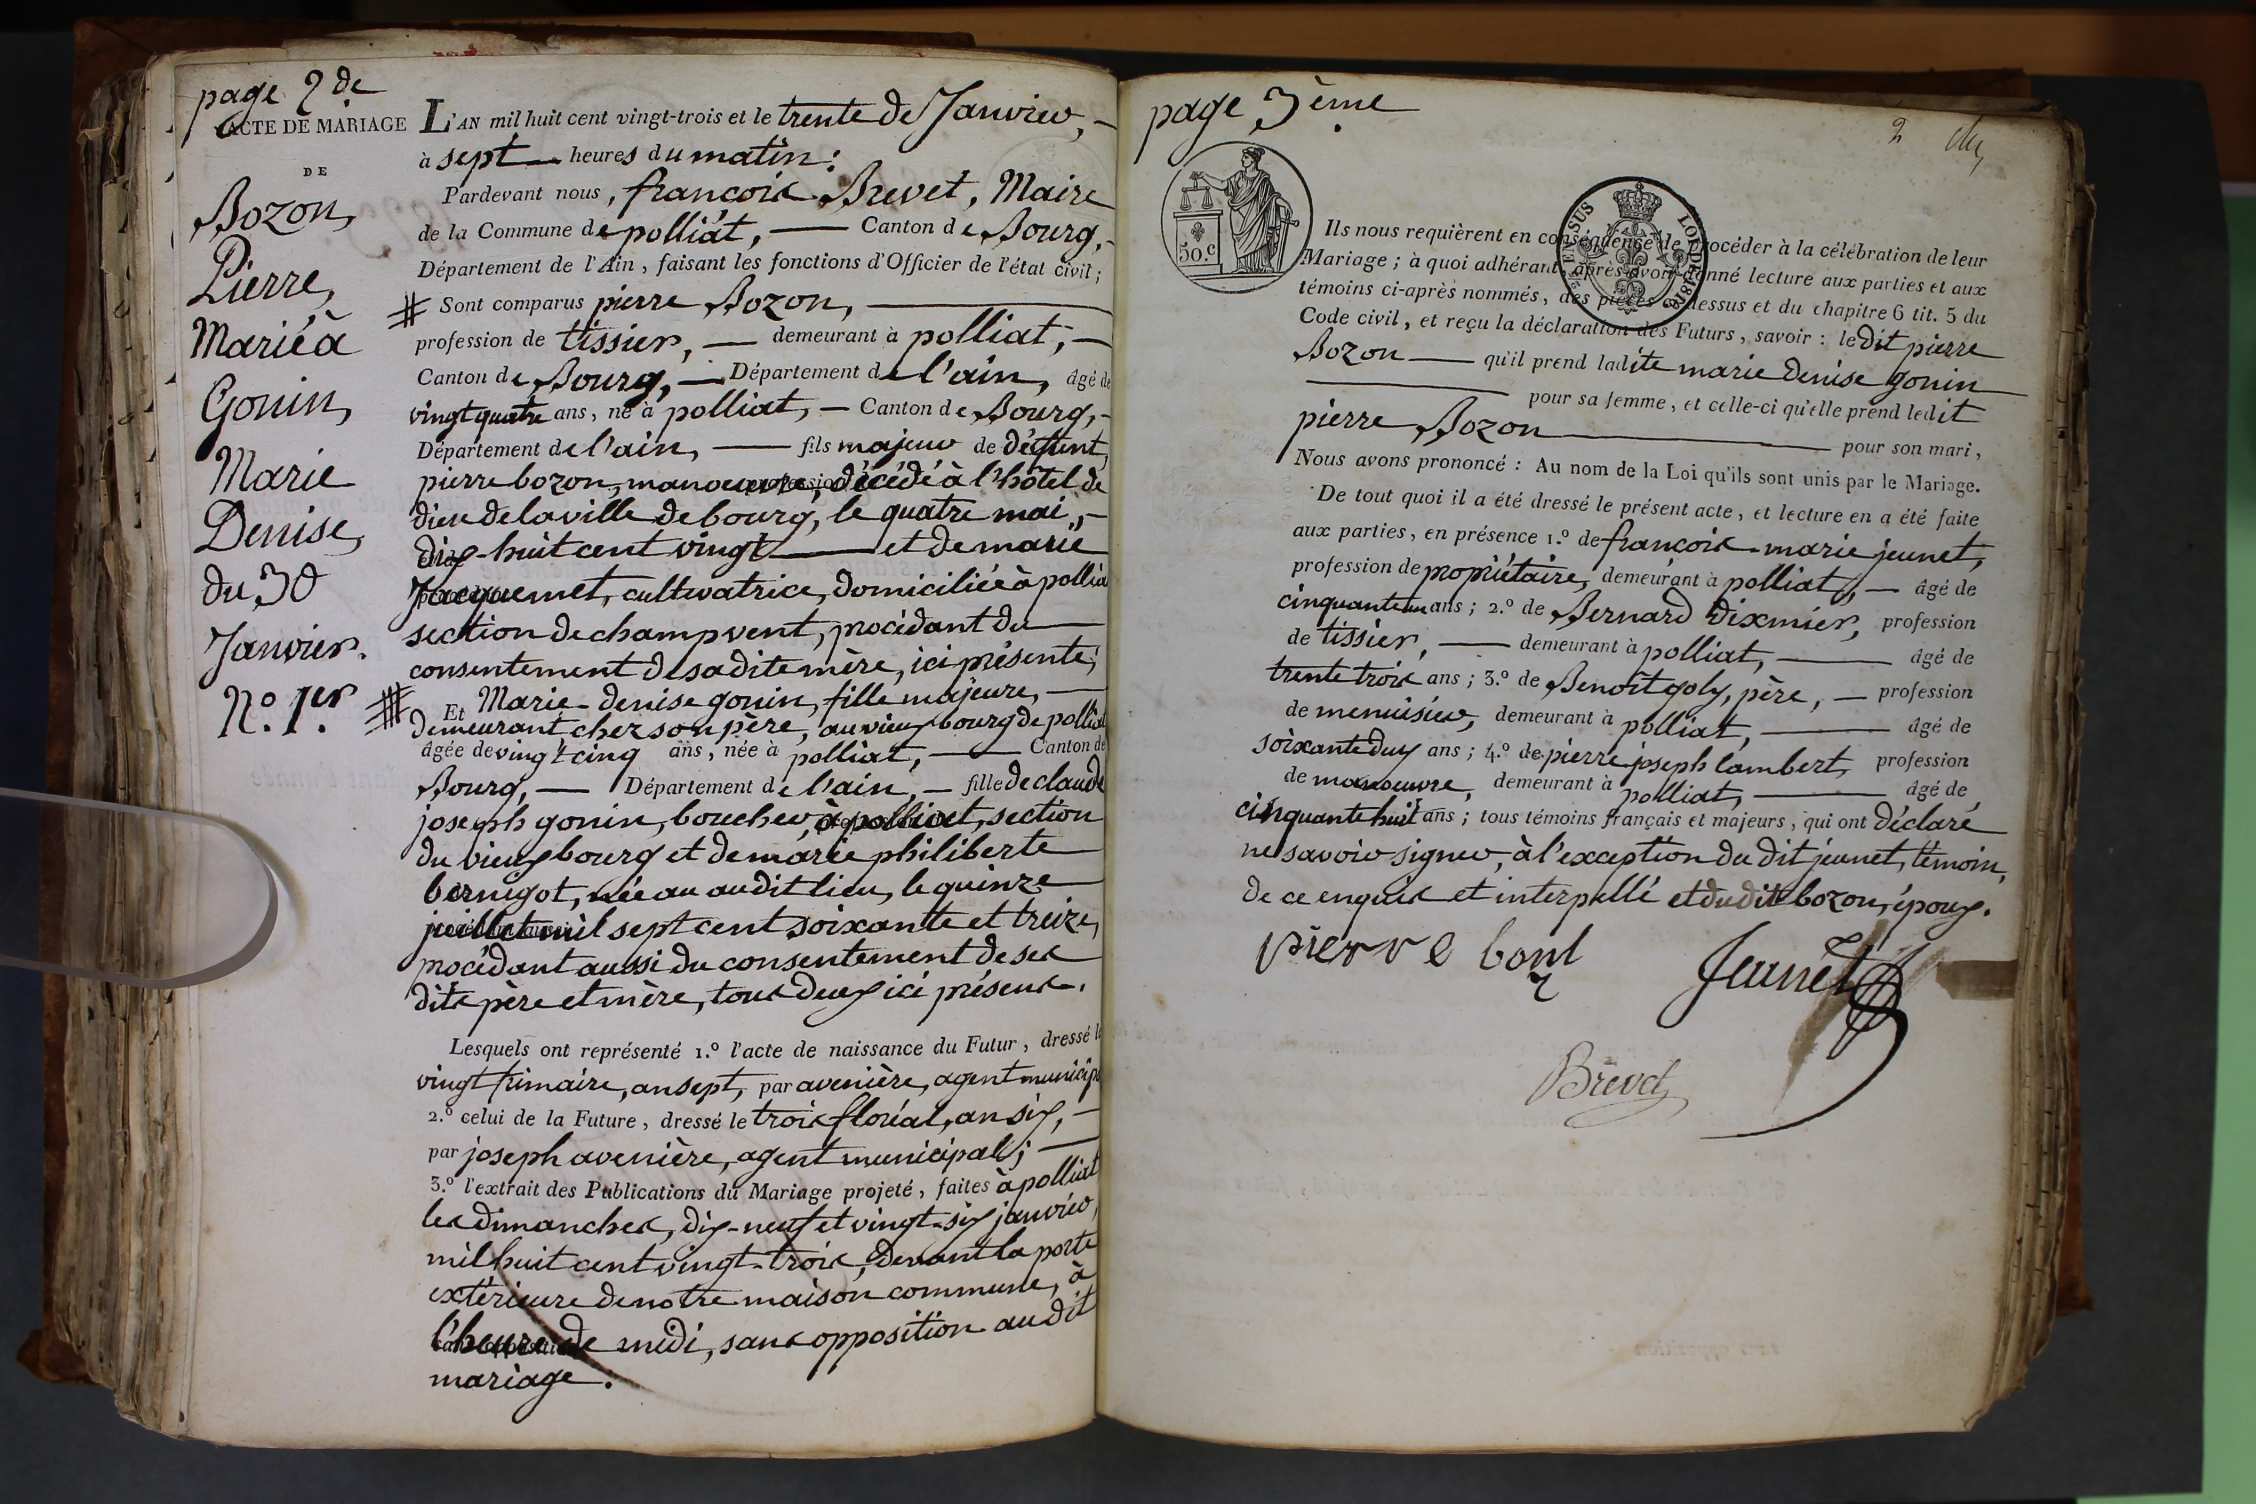 page 2de
ACTE DE MARIAGE
DE
Bozon,
Pierre,
Marié à
Gonin,
Marie
Denise,
du 30
Janvier.
N.º 1.er
L'AN mil huit cent vingt-trois et le trente de Janvier,
à sept heures du matin:
Pardevant nous, françois Brevet, Maire
de la Commune de polliat, Canton de Bourg,
Département de l'Ain, faisant les fonctions d'Officier de l'état civil;
# Sont comparus pierre Bozon,
profession de tissier, demeurant à polliat,
Canton de Bourg, Département de l'ain, âgé de
vingt quatre ans, né à polliat, Canton de Bourg,
Département de l'ain, fils majeur de défunt
pierre bozon, manoeuvre, décédé à l'hôtel de
dieu de la ville de bourg, le quatre mai,
dix-huit cent vingt et de marie
Jacquemet, cultivatrice, domiciliée à pollia
section de champvent, procédant du
consentement de sa dite mère, ici présente;
# Et Marie-denise gonin, fille majeure,
demeurant chez son père, au vieux bourg de polliat
âgée de vingt cinq ans, née à polliat, Canton de
Bourg, Département de l'ain, fille de claude
joseph gonin, boucher, à polliat, section
du vieux bourg et de marie philiberte
bernigot, née au audit lieu, le quinze
juillet mil sept cent soixante et treize,
procédant aussi du consentement de ses
dits père et mère, tous deux ici présens.
Lesquels ont représenté 1.º l'acte de naissance du Futur, dressé le
vingt frimaire, an sept, par avenière, agent municip
2.º celui de la Future, dressé le trois floréal, an six,
par joseph avenière, agent municipal;
3.º l'extrait des Publications du Mariage projeté, faites à polliat
les dimanches, dix-neuf et vingt-six janvier,
mil huit cent vingt-trois, devant la porte
extérieure de notre maison commune, à
l'heure de midi, sans opposition au dit
mariage:
page 3ème
2
50.C
Ils nous requièrent en conséquence de procéder à la célébration de leur
Mariage; à quoi adhérant, après avoir donné lecture aux parties et aux
témoins ci-après nommés, des pièces ci-dessus et du chapitre 6 tit. 5 du
Code civil, et reçu la déclaration des Futurs, savoir: le dit pierre
Bozon qu'il prend ladite marie denise gonin
pour sa femme, et celle-ci qu'elle prend ledit
pierre Bozon pour son mari,
Nous avons prononcé: Au nom de la Loi qu'ils sont unis par le Mariage.
De tout quoi il a été dressé le présent acte, et lecture en a été faite
aux parties, en présence 1.º de françois-marie jeunet,
profession de propriétaire, demeurant à polliat, âgé de
cinquante un ans; 2.º de Bernard Dixmier, profession
de tissier, demeurant à polliat, âgé de
trente trois ans; 3.º de Benoît goly, père, profession
de menuisier, demeurant à polliat, âgé de
soixante dux ans; 4.º de pierre joseph lambert, profession
de manoeuvre, demeurant à polliat, âgé de
cinquante huit ans; tous témoins français et majeurs, qui ont déclaré
ne savoir signer, à l'exception du dit jeunet, témoin,
de ce enquis et interpellé et du dit bozon, époux.
pierre bonz
Jeunet
Brevet